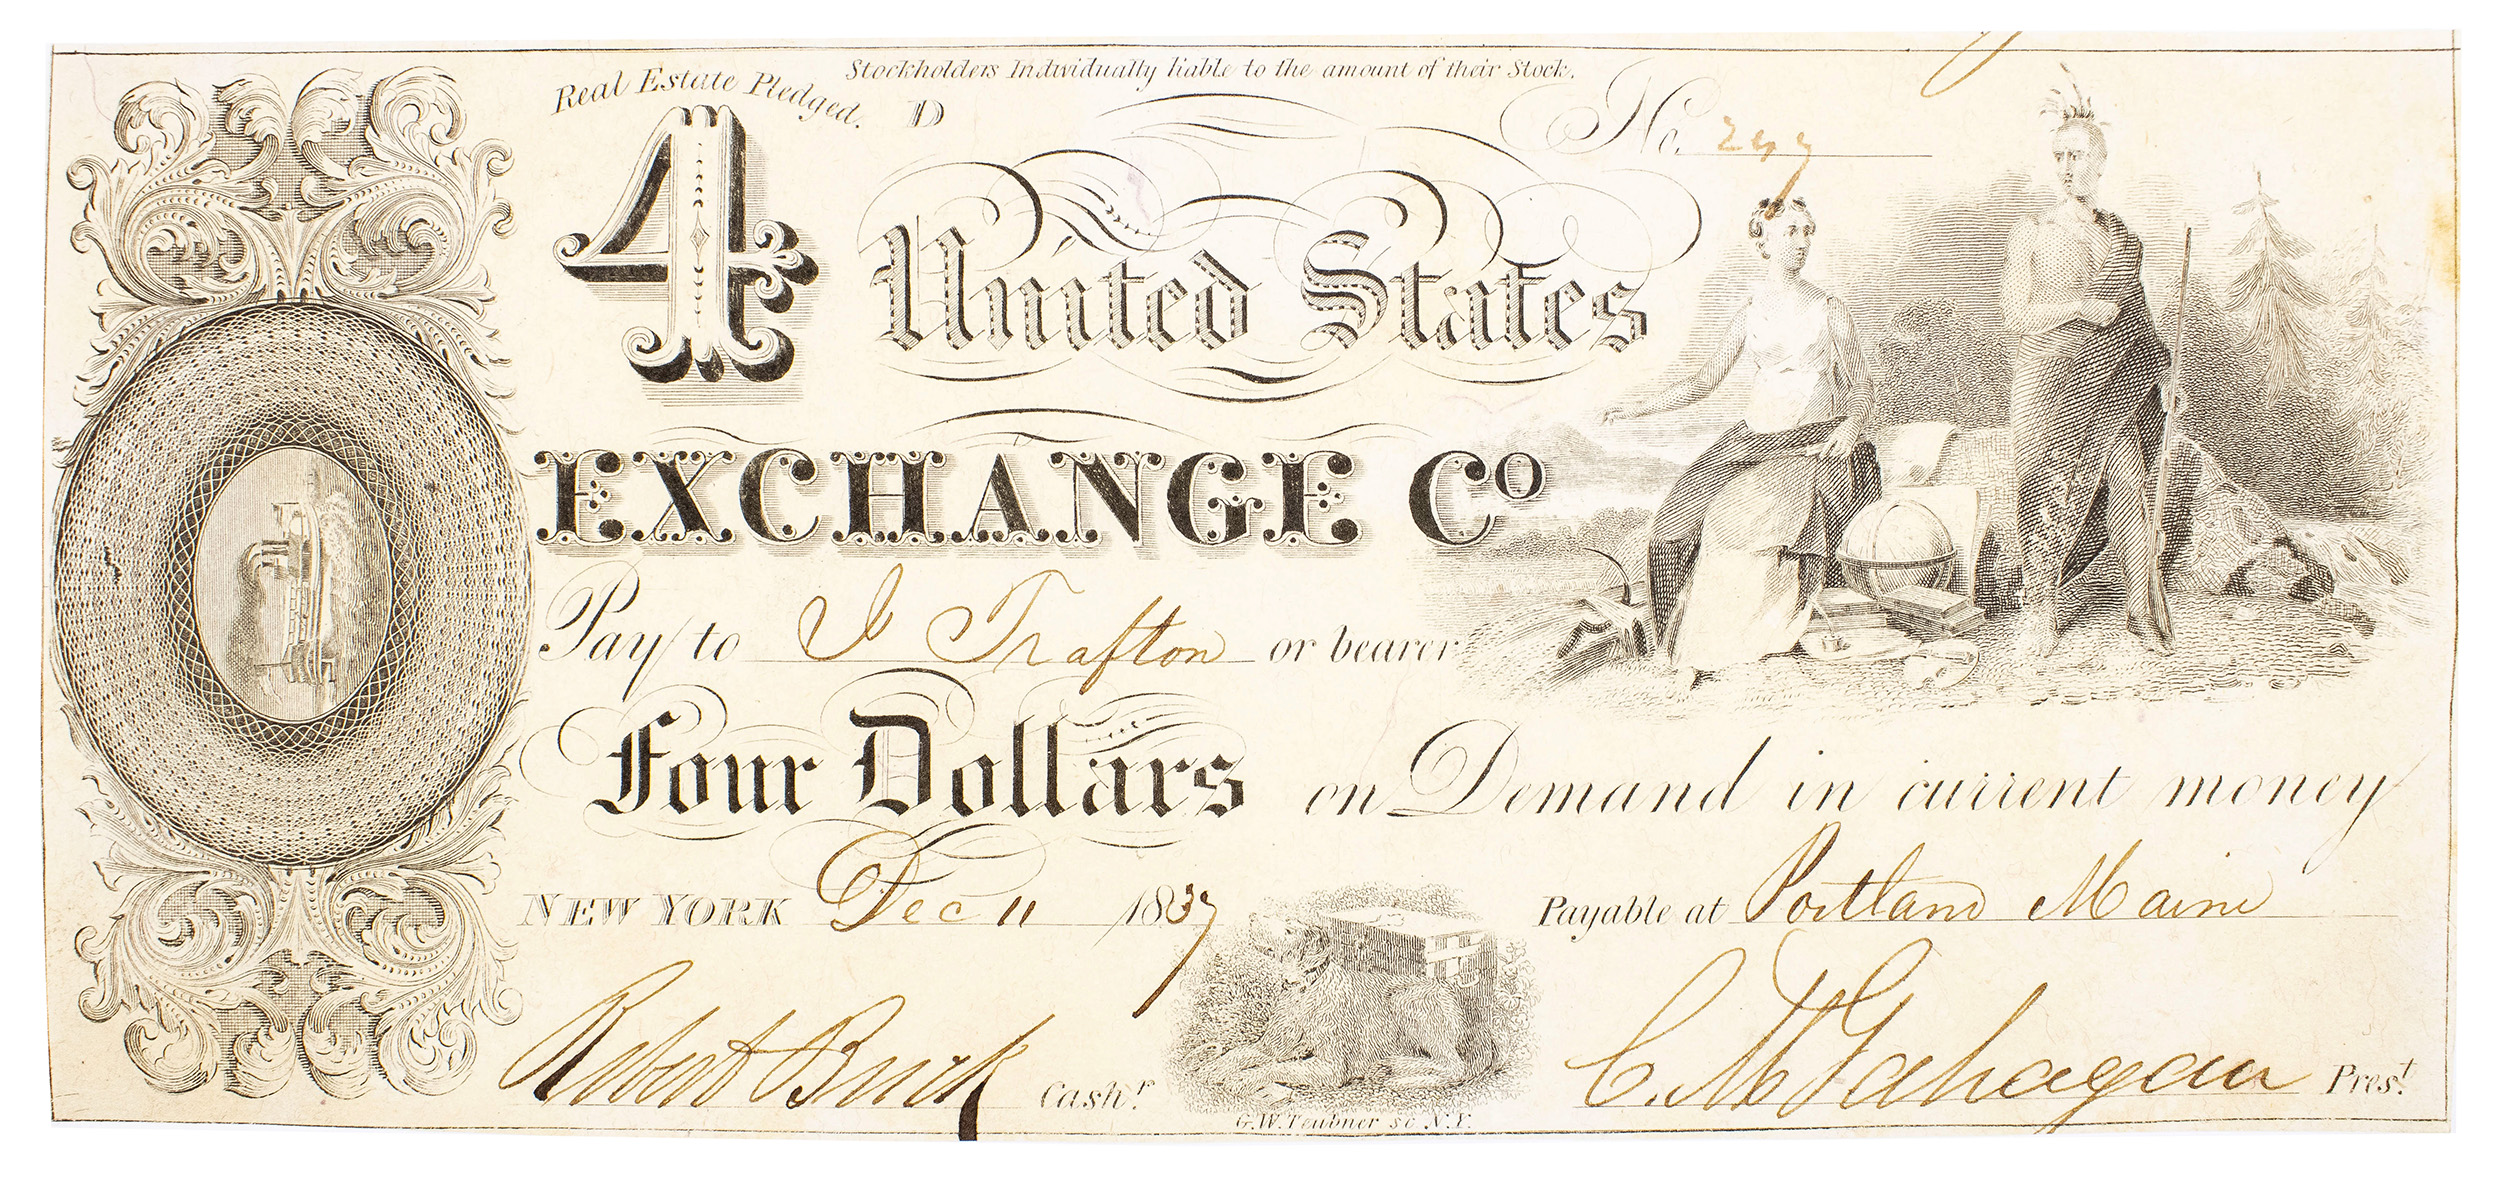 Stockholders Individually liable to the amount of their Stock.
Real Estate Pledged. D
No.
4 United States
EXCHANGE Co
Pay to J Trafton or bearer
Four Dollars on Demand in current money
NEW YORK Dec 11 1837 Payable at Portland Maine
Robert Buck Cashr. C. McGahagan Prest.
G.W. Teubner sc N.Y.